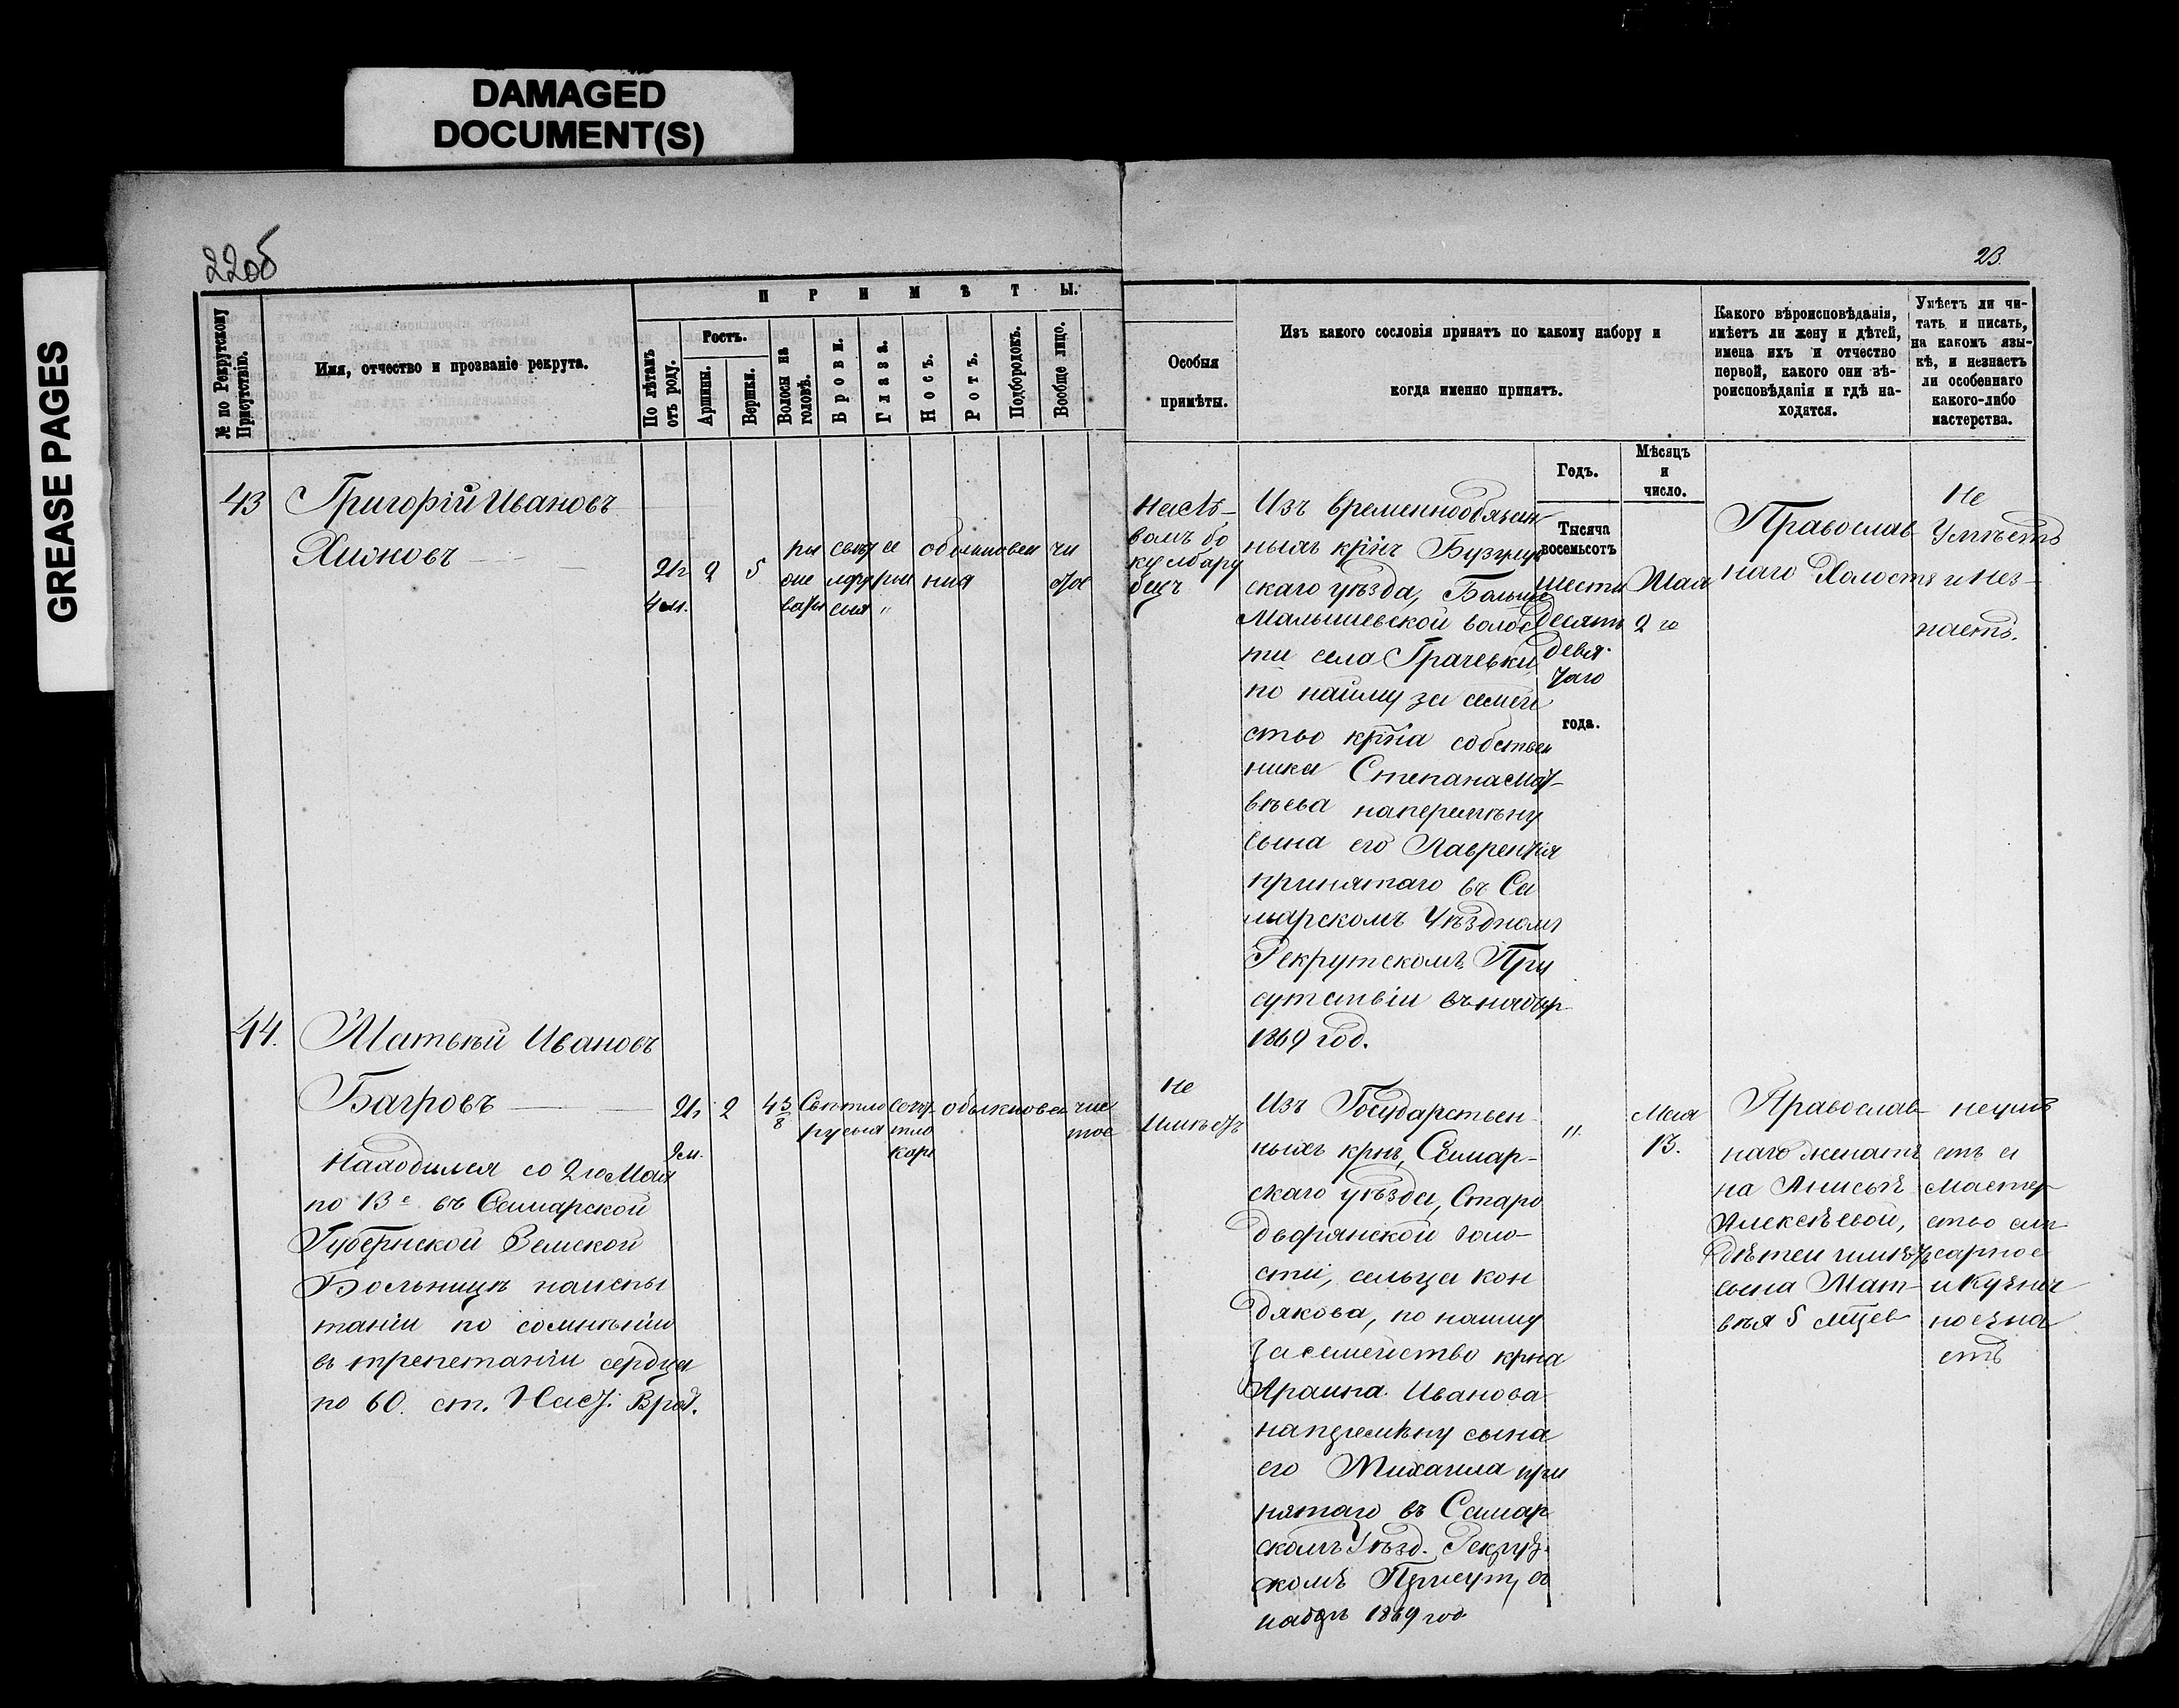 DAMAGED
DOCUMENT(S)
GREASE PAGES
22об
23.
№ по Рекрутскому
Присутствію.
Имя, отчество и прозваніе рекрута.
ПРИМѢТЫ.
По лѣтамъ
отъ роду.
Ростъ.
Аршины.
Вершки.
Волосы на
головѣ.
Брови.
Глаза.
Носъ.
Ротъ.
Подбородокъ.
Вообще лицо.
Особыя
примѣты.
Изъ какого сословія принятъ по какому набору и
когда именно принятъ.
Какого вѣроисповѣданія,
имѣетъ ли жену и дѣтей,
имена ихъ и отчество
первой, какого они вѣ-
роисповѣданія и гдѣ на-
ходятся.
Умѣетъ ли чи-
тать и писать,
на какомъ язы-
кѣ, и незнаетъ
ли особеннаго
какого-либо
мастерства.
Годъ.
Мѣсяцъ
и
число.
43
Григорій Ивановъ
Хионовъ
21г
4 м.
2
5
обыкновен
ния
чи
тое
на лѣ-
вомъ бо
ку
Изъ временнообязан
ныхъ крнъ Бузулук
скаго уѣзда, Больше
Малышевской волос
ти села Грачевки,
по найму за семей
ство крна собствен
ника Степана Мат-
вѣева наперемѣну
сына его Лаврентія
принятаго въ Са
марскомъ Уѣздномъ
Рекрутскомъ При
сутствіи въ наборъ
1869 год.
Тысяча
восемьсотъ
шести
десятъ
девя-
таго
года.
Мая
2 го
Православ
наго Холостъ
Не
Умѣетъ
и Нез-
наетъ.
44.
Матвѣй Ивановъ
Багровъ
21г
2 м.
2
4 5/8
Свѣтло
русыя
свѣт
тло
кар
обыкновен
чис
тое
Находился со 2го Мая
по 13е въ Самарской
Губернской Земской
Больницѣ на испы
таніи по сомнѣнію
въ трепетаніи сердца
по 60. ст. Наст. Врач.
Не
Имѣетъ
Изъ Государствен-
ныхъ крнъ, Самар-
скаго уѣзда, Старо
дворянской воло-
сти, сельца Кон
дакова, по найму
за семейство крна
Ивановa
наперемѣну сына
его Михаила при
нятаго въ Самар
скомъ Уѣзд. Рекрут.
скомъ Присут, въ
наборъ 1869 год
"
Мая
13.
Православ
наго женатъ
на Анисьѣ
Алексѣевой,
дѣтей имѣетъ
сына Мат-
вѣя 5 мцев
неумѣ
етъ а
мастер
ство сле
сарное
и Кузнеч
ное зна
етъ